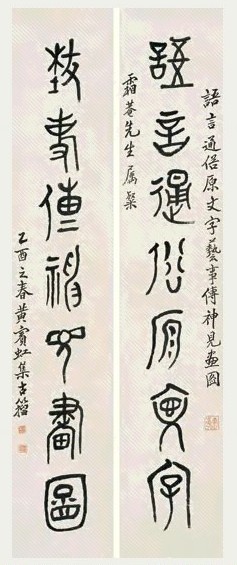 語言通俗原文字藝事傳神見畫圖
語言通俗原文字
霜菴先生属粲
藝事傳神見畫圖
乙酉之春黃賓虹集古籀